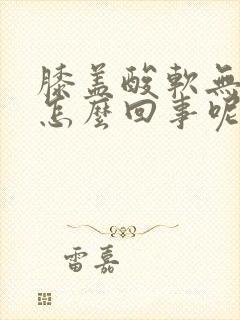 膝盖酸軟無
怎麼回事呢
雷嘉